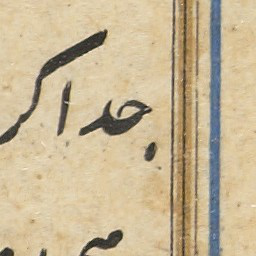 جدا کر